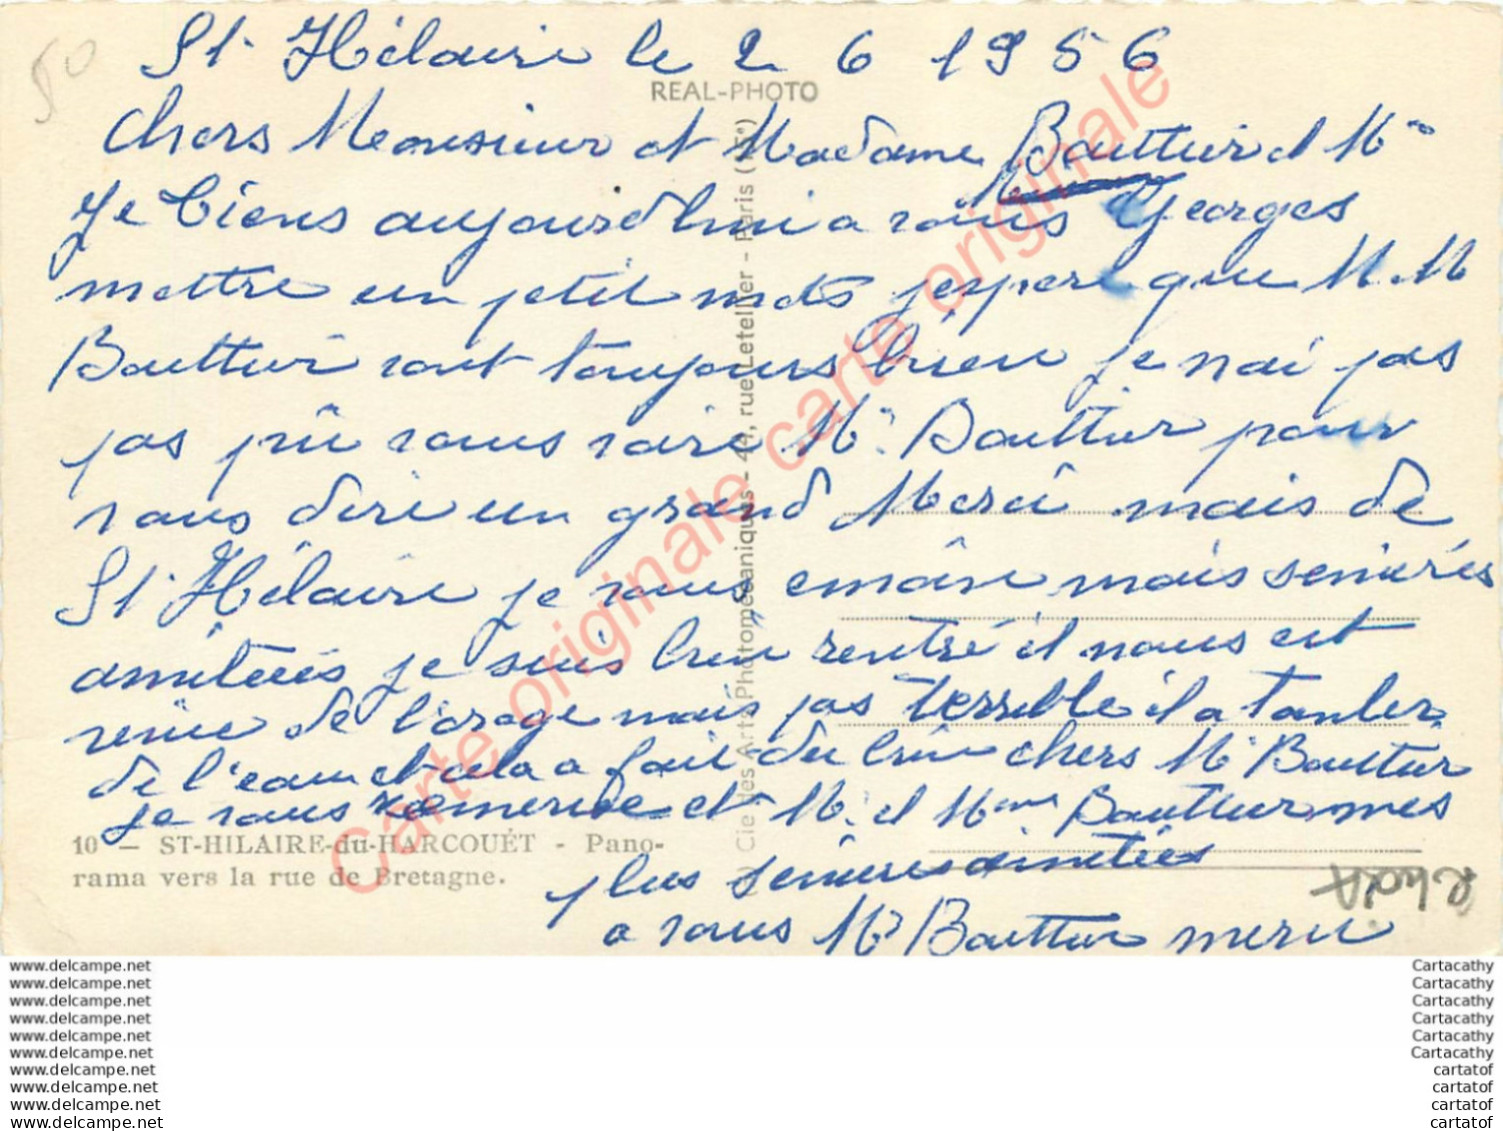 50
St Hélaire le 2 6 1956
REAL-PHOTO
Chers Monsieur et Madame Bauttier et Mr
Je Ciens aujourd'hui a vous Georges
mettre un petit mots j'espere que M M
Bauttier vont toujours bien je nai pas
pas pû vous voire Mr Bauttier pour
vous dire un grand Merci mais de
St Hélaire je vous mais sencirés
amiteiés je suis bien rentré il nous est
venu de l'orage mais pas terrible il a tomber
de l'eau et cela a fait du bien chers Mr Bauttier
je vous et M. et Mme Bauttier mes
10 — ST-HILAIRE-du-HARCOUËT - Pano-
rama vers la rue de Bretagne.
plus amitiés
a vous Mr Bauttier merci
Cie des Arts Photomécaniques - 44, rue Letellier - Paris (15e)
Carte originale carte originale
www.delcampe.net
www.delcampe.net
www.delcampe.net
www.delcampe.net
www.delcampe.net
www.delcampe.net
www.delcampe.net
www.delcampe.net
www.delcampe.net
www.delcampe.net
Cartacathy
Cartacathy
Cartacathy
Cartacathy
Cartacathy
Cartacathy
cartatof
cartatof
cartatof
cartatof